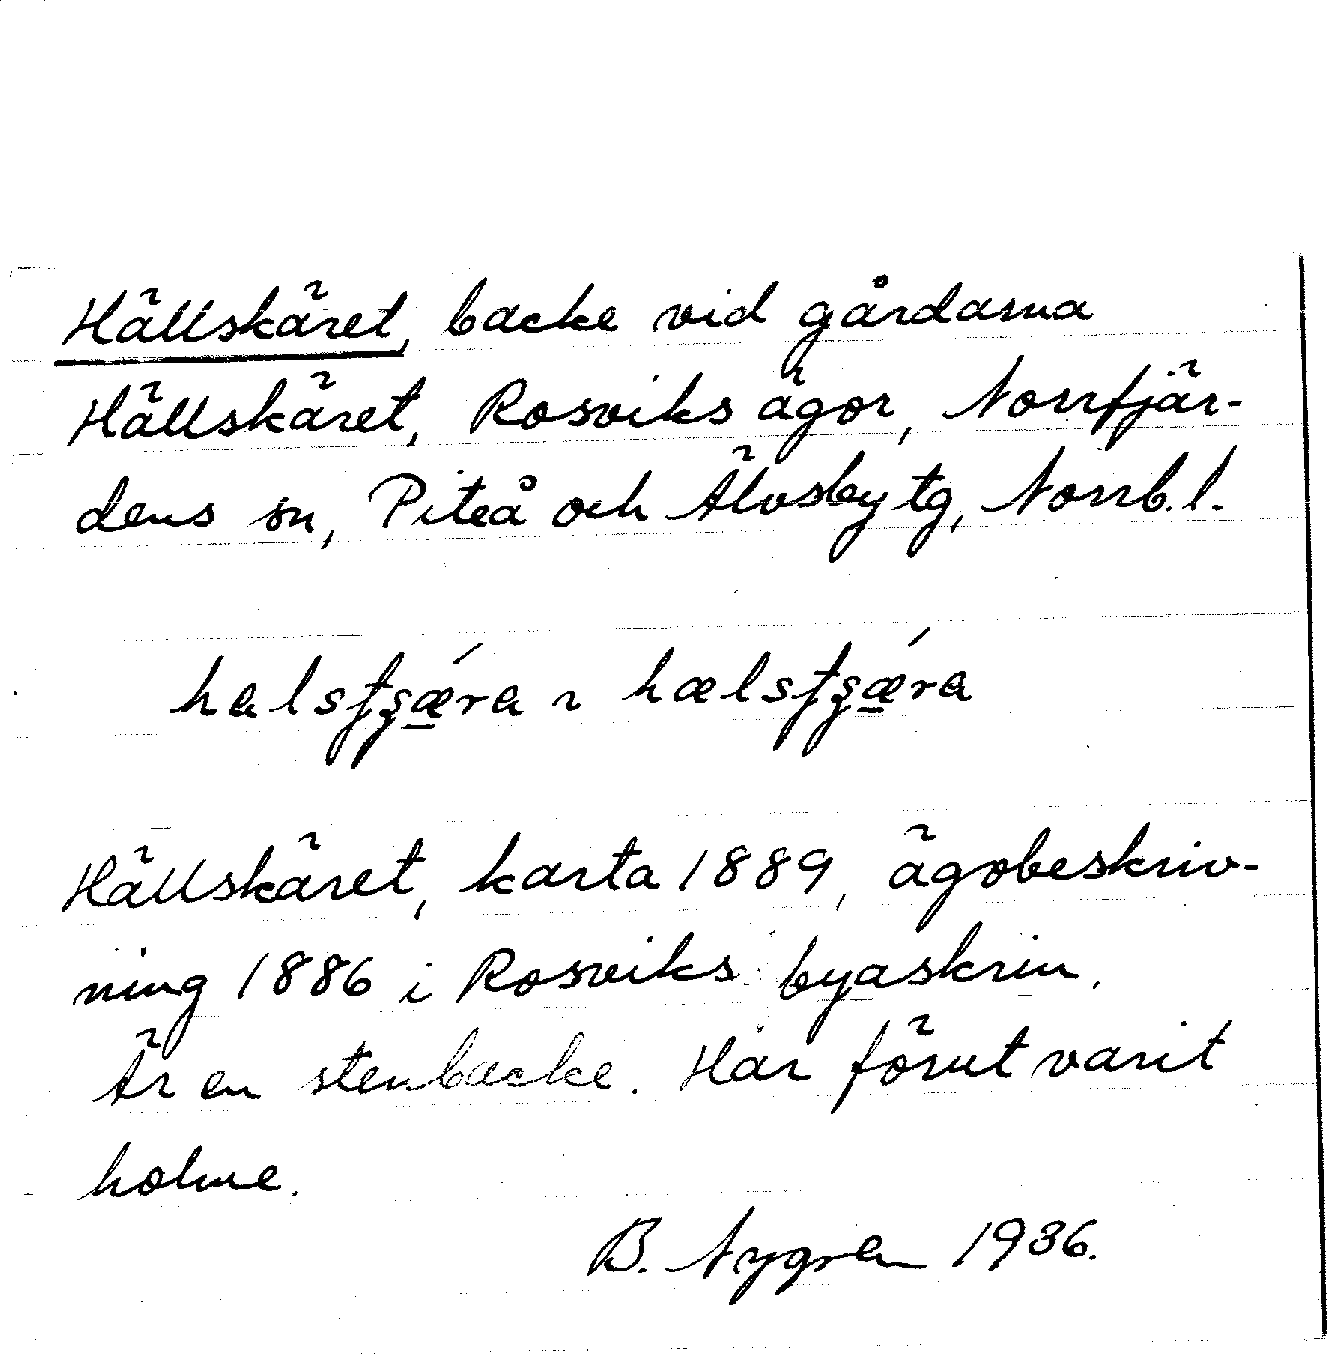 Hällskäret, backe vid gårdarna
Hällskäret, Rosviks ägor, Norrfjär-
dens sn, Piteå och Älvsby tg, Norrb. l.
halsʃʂǽra ~ hælsʃʂǽra
Hällskäret, karta 1889, ägobeskriv-
ning 1886 i Rosviks byaskrin.
Är en stenbacke. Har förut varit
holme.
B. Nygren 1936.